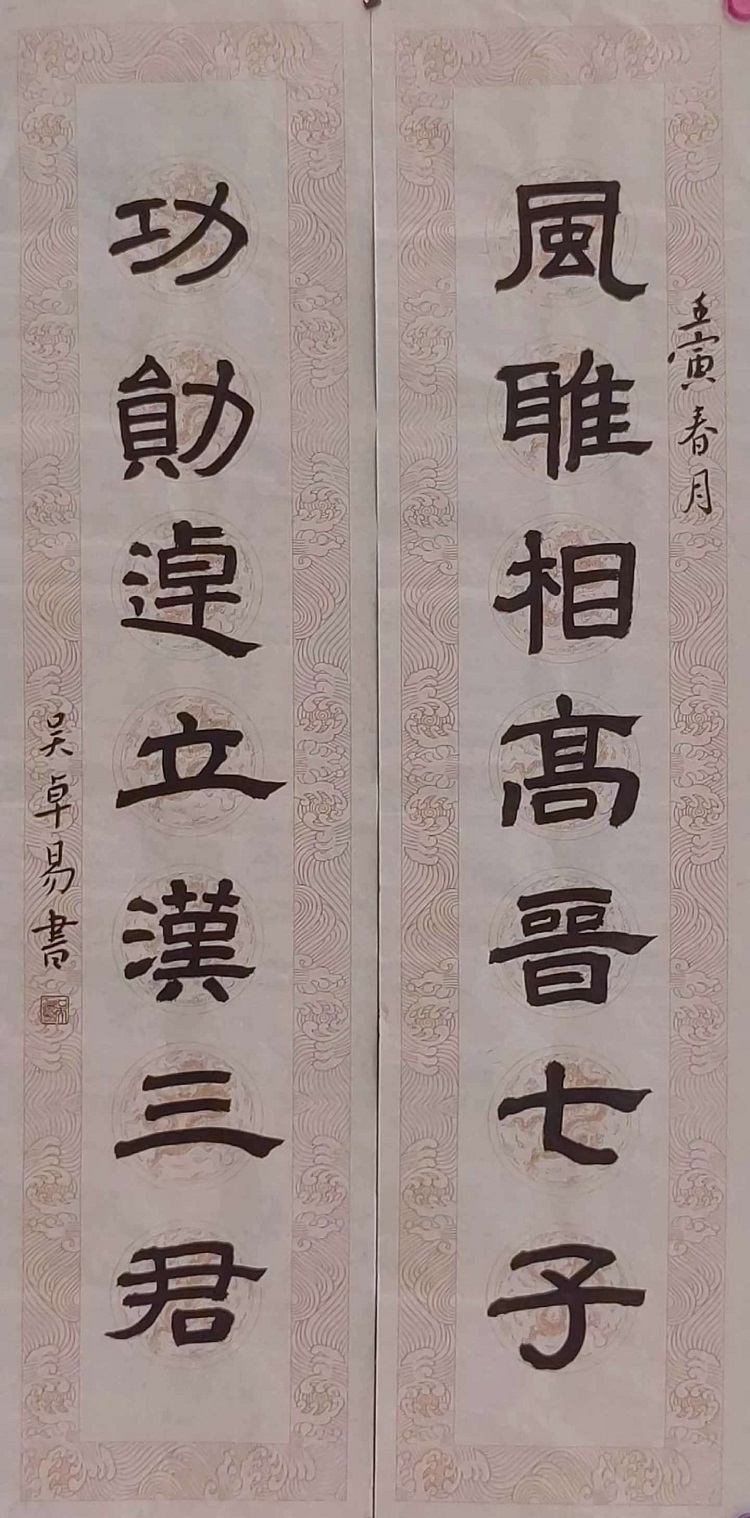 壬寅春月
風雅相髙晉七子
功勛逴立漢三君
吴卓易書